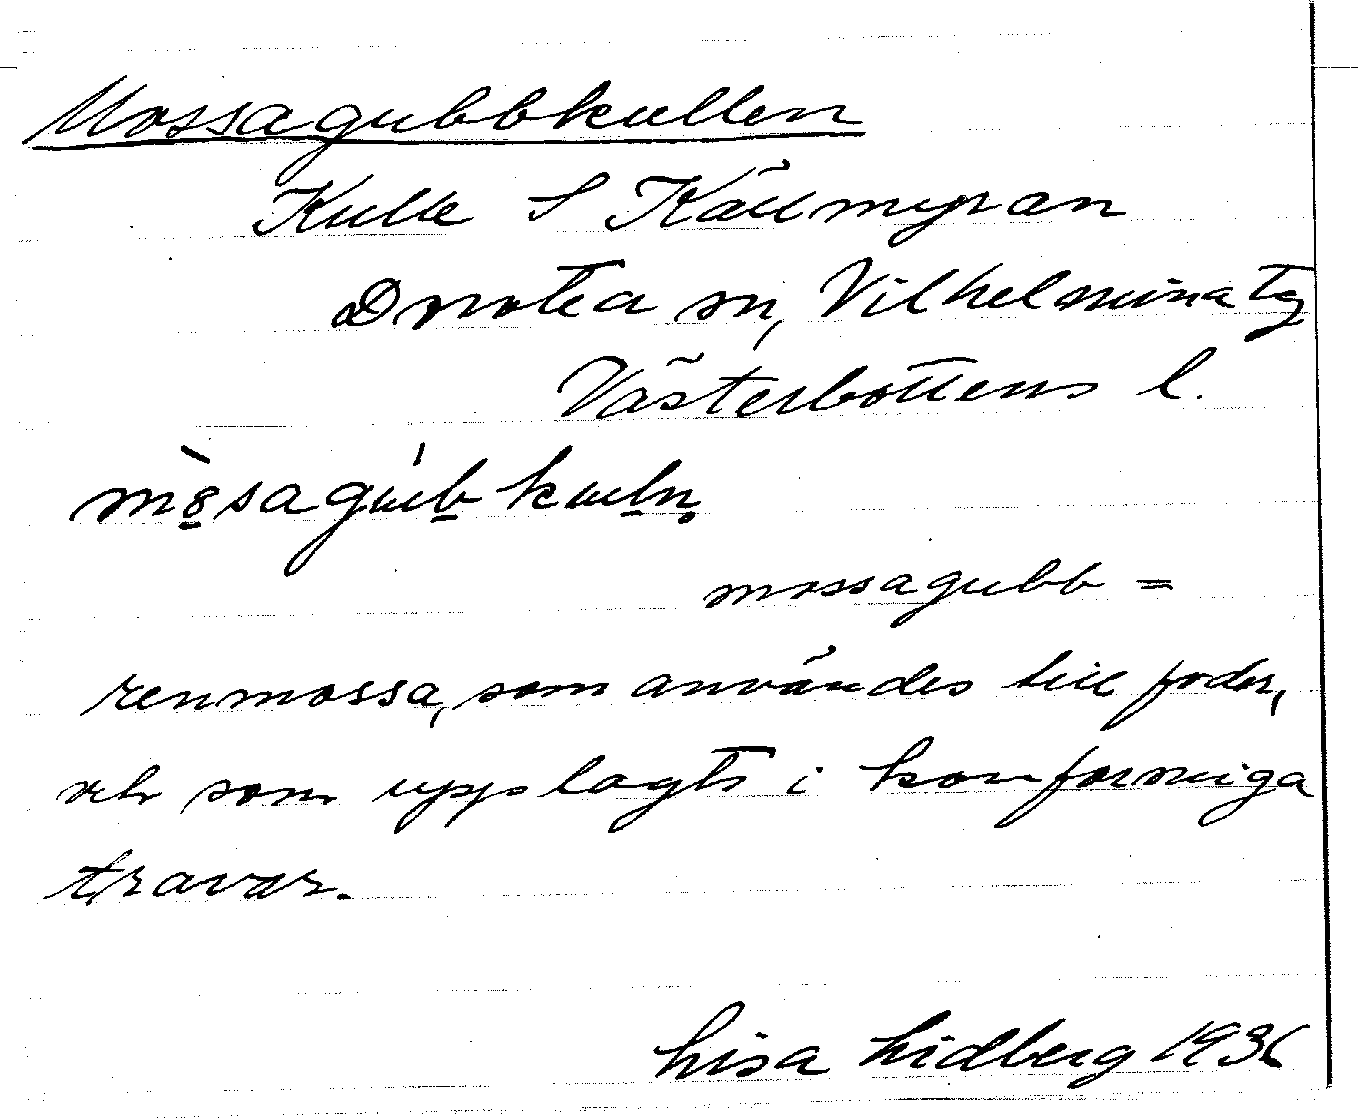 Mossagubbkullen
Kulle S Källmyran
Dorotea sn, Vilhelmina tg
Västerbottens l.
mossagubb =
renmossa, som användes till foder,
och som upplagts i konformiga
travar.
Lisa Lidberg 1936